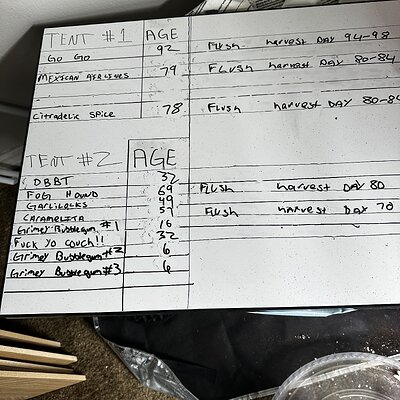 TENT #1 AGE
GO GO 92 Flush harvest DAY 94-98
MEXICAN AIRLINES 79 FLUSH harvest DAY 80-84
Citradelic Spice 78 Flush harvest DAY 80-84
TENT #2 AGE
DBBT 32
FOG HOUND 69 Flush harvest DAY 80
GARLILOCKS 49
CARAMELITA 57 Flush harvest DAY 70
Grimey Bubblegum #1 16
Fuck Yo Couch!! 32
Grimey Bubblegum #2 6
Grimey Bubblegum #3 6